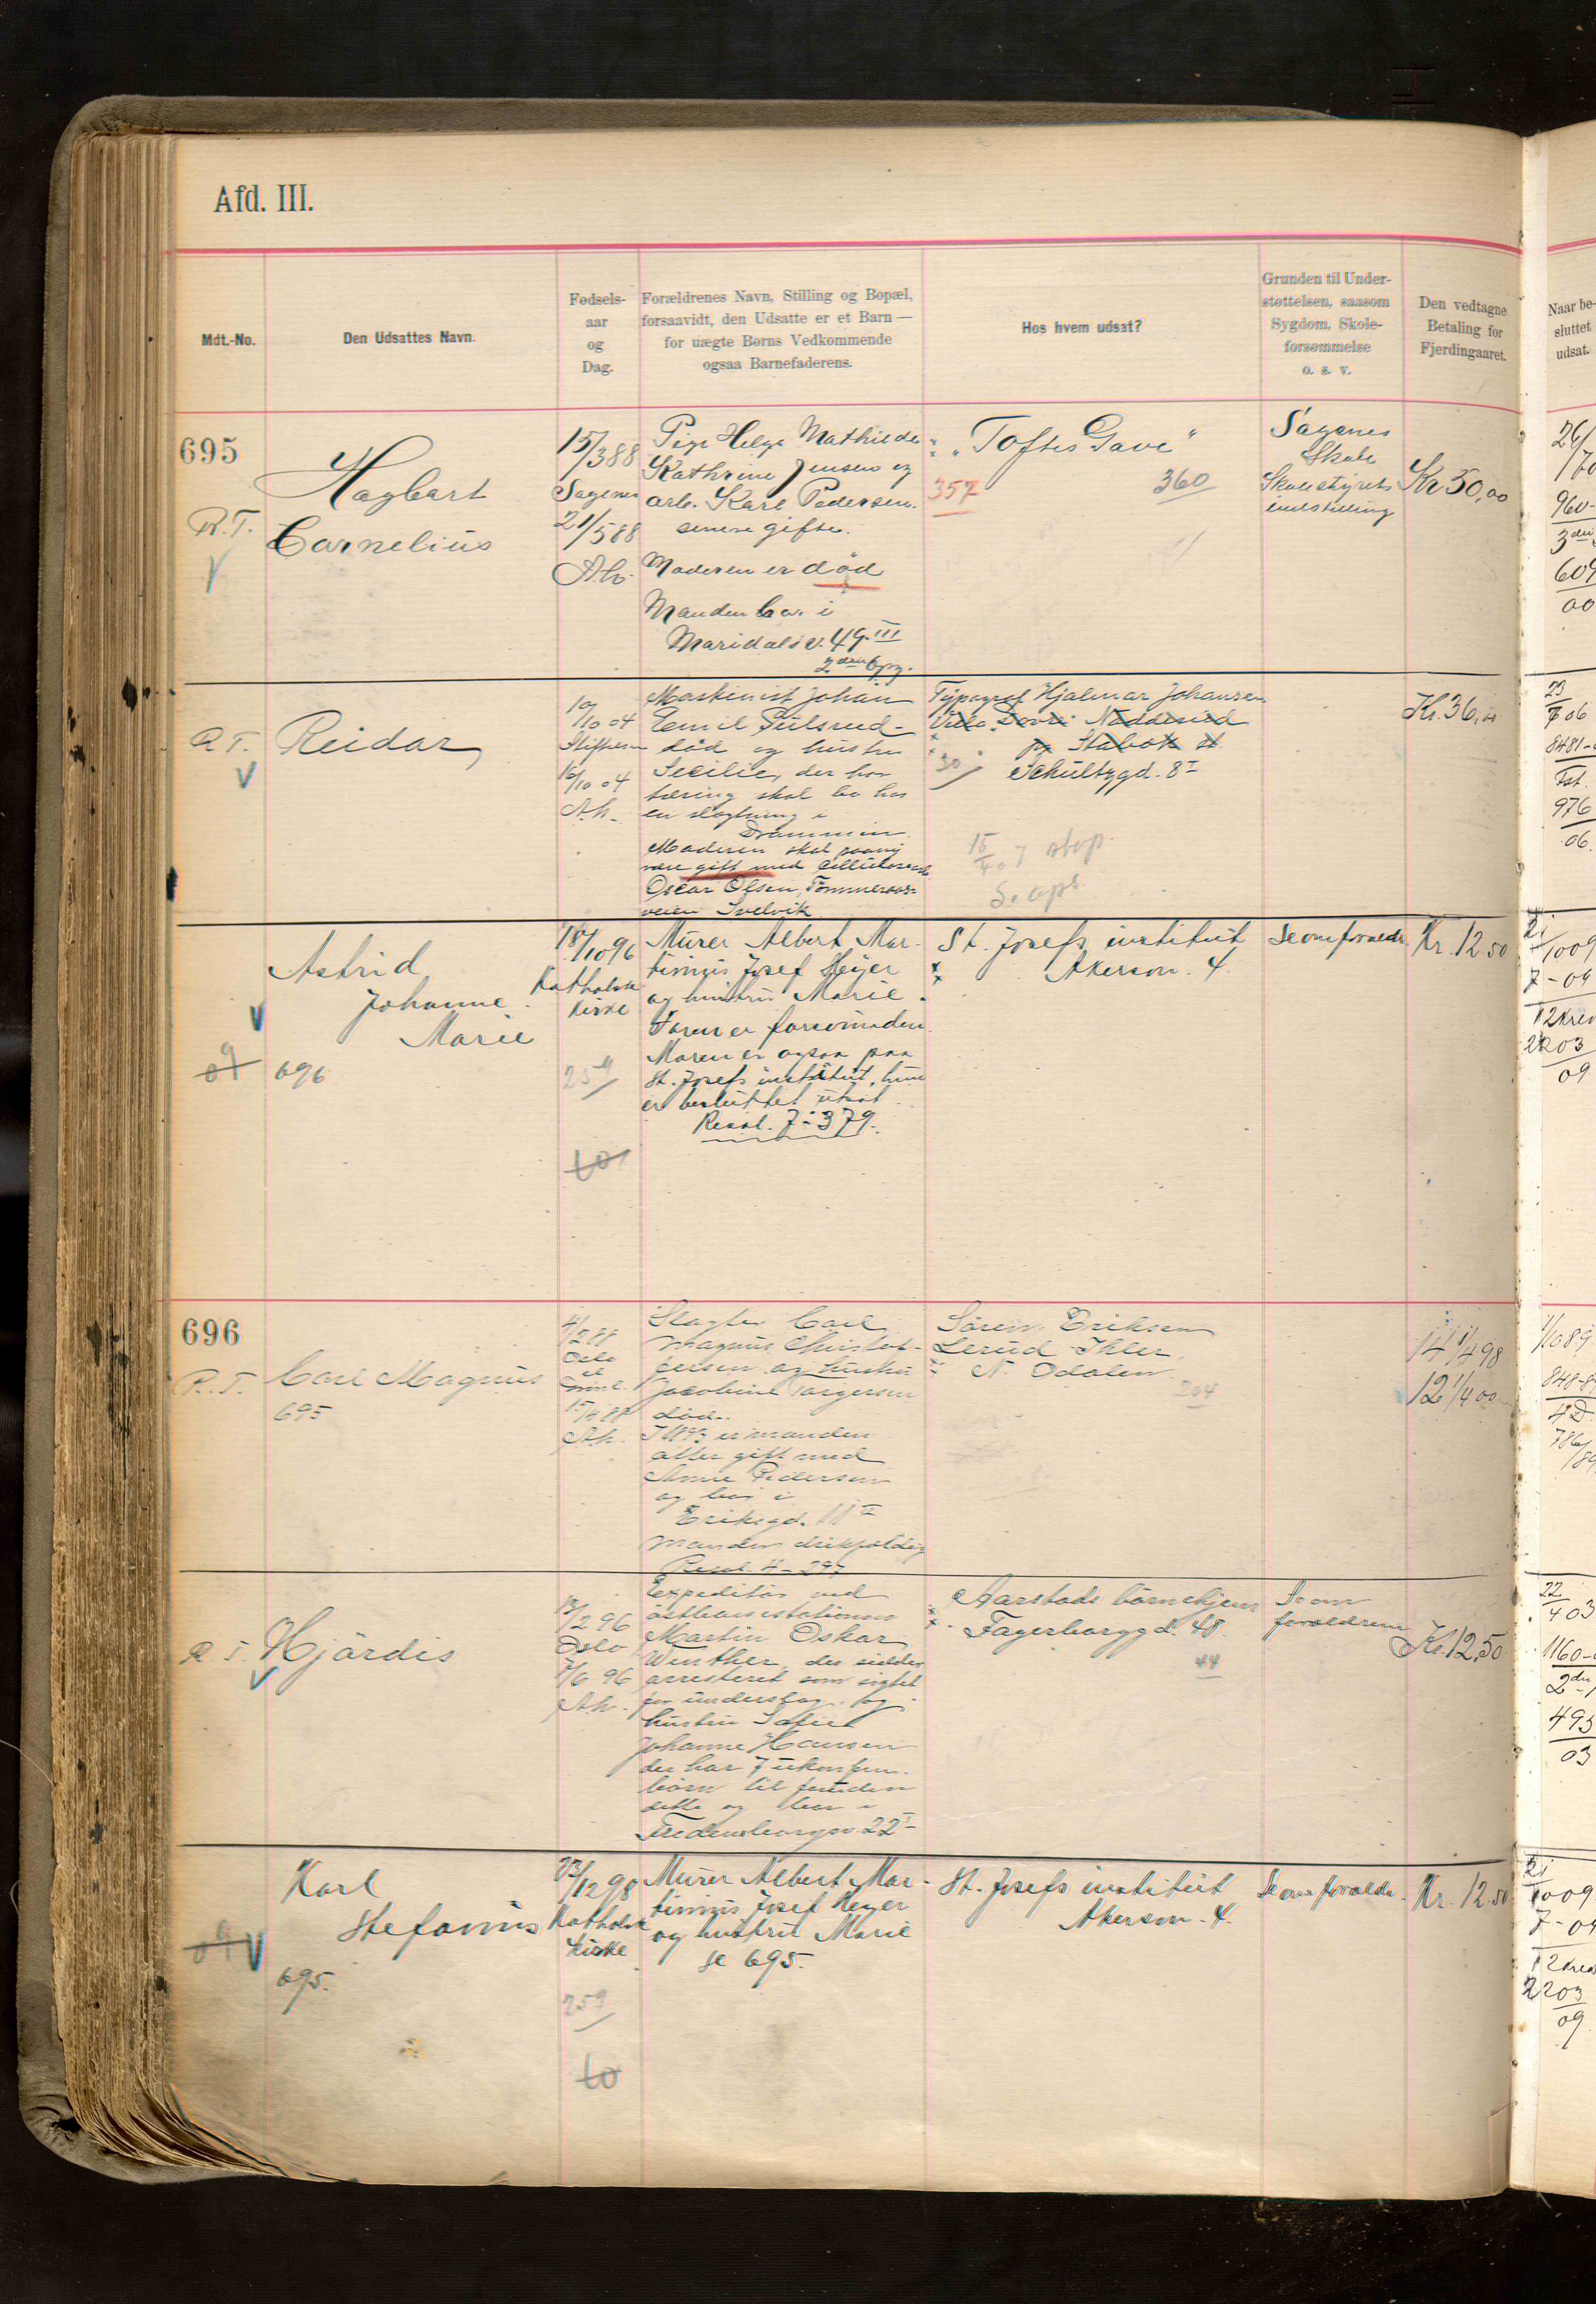 Afd. III.
Mdt.-No.
Den Udsattes Navn.
Fødsels-
aar
og
Dag.
Forældrenes Navn, Stilling og Bopæl,
forsaavidt, den Udsatte er et Barn —
for uægte Børns Vedkommende
ogsaa Barnefaderens.
Hos hvem udsat?
Grunden til Under-
støttelsen, saasom
Sygdom, Skole-
forsømmelse
o. s. v.
Den vedtagne
Betaling for
Fjerdingaaret.
Naar be-
sluttet
udsat.
695
R.T.
Hagbart
Cornelius
15/3 88
Sagenes
21/5 88
Pige Helga Mathilde
Kathrine Jensen og
arb. Karl Pedersen.
senere gifte.
Moderen er død
Manden bor i
Maridalsv. 49 III
2den Opg.
„Toftes Gave"
357
360
Sagenes
Skole
Skolestyrets
indstilling
Kr 50,00
R.T.
Reidar
10/10 04
Maskinist Johan
Emil
død og hustru
Secilie, der har
tæring skal bo hos
en slægtning i
Drammen
Moderen skal paany
være gift med
Oscar Olsen, Tømmeraas-
veien Svelvik
Typograf Hjalmar Johansen
Villa Dovre Nadderud
pr Stabæk st
Schultzgd. 8 I
30
stop
Kr. 36,
Astrid
Johanne
Marie
696
18/10 96
Katholsk
Kirke
259
Murer Albert Mar-
tinius Josef Heyer
og hustru Marie.
Faren er forsvunden.
Moren er ogsaa paa
St. Josefs institut, hun
er besluttet utsat
Resol. 7-379.
St. Josefs institut
Akersv. 4.
Se om forældr.
Kr. 12.50
696
R.T.
Carl Magnus
695
4/2 88
Oslo
Slagter Carl
Magnus Christof-
fersen og hustru
Jacobine Torgersen
død.
I 1893 er manden
atter gift med
Anne Pedersen
og bor i
Eriksgd. 11 II
Manden drikfældig
Resol. 4-297
Søren Eriksen
Lerud Ihler
N. Odalen
204
14 1/4 98
12 1/4 00
R.T.
Hjördis
18/2 96
Oslo
7/6 96
Expeditör ved
östbanestationen
Martin Oskar
Winther, der sidder
arresteret som sigtet
for underslag, og
hustru Sofie
Johanne Hansen
der har 7 ukonfirm.
børn til foruden
dette og bor i
Fredensborgv. 22 I
Aarstads børnehjem
Fagerborggd. 48.
44
Se om
forældrene
Kr. 12,50
Karl
Stefanus
695.
23/12 98
Katholsk
Kirke
259
Murer Albert Mar-
tinius Josef Heyer
og hustru Marie
se 695.
St. Josefs institut
Akersv. 4.
Se om forældr.
Kr. 12.50